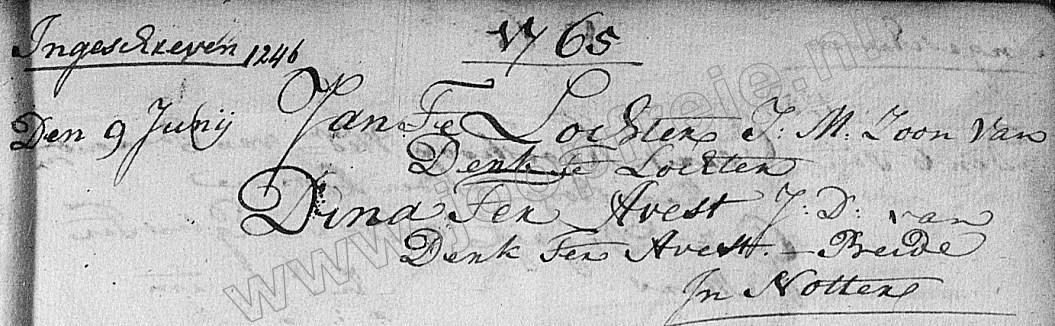 Ingeschreven 1246 1765
Den 9 Junij Jan Te Lochten J: M: Zoon van
Denk te Lochten
Dina Ten Avest J: D: van
Denk Ten Avest. - Beide
In Notter